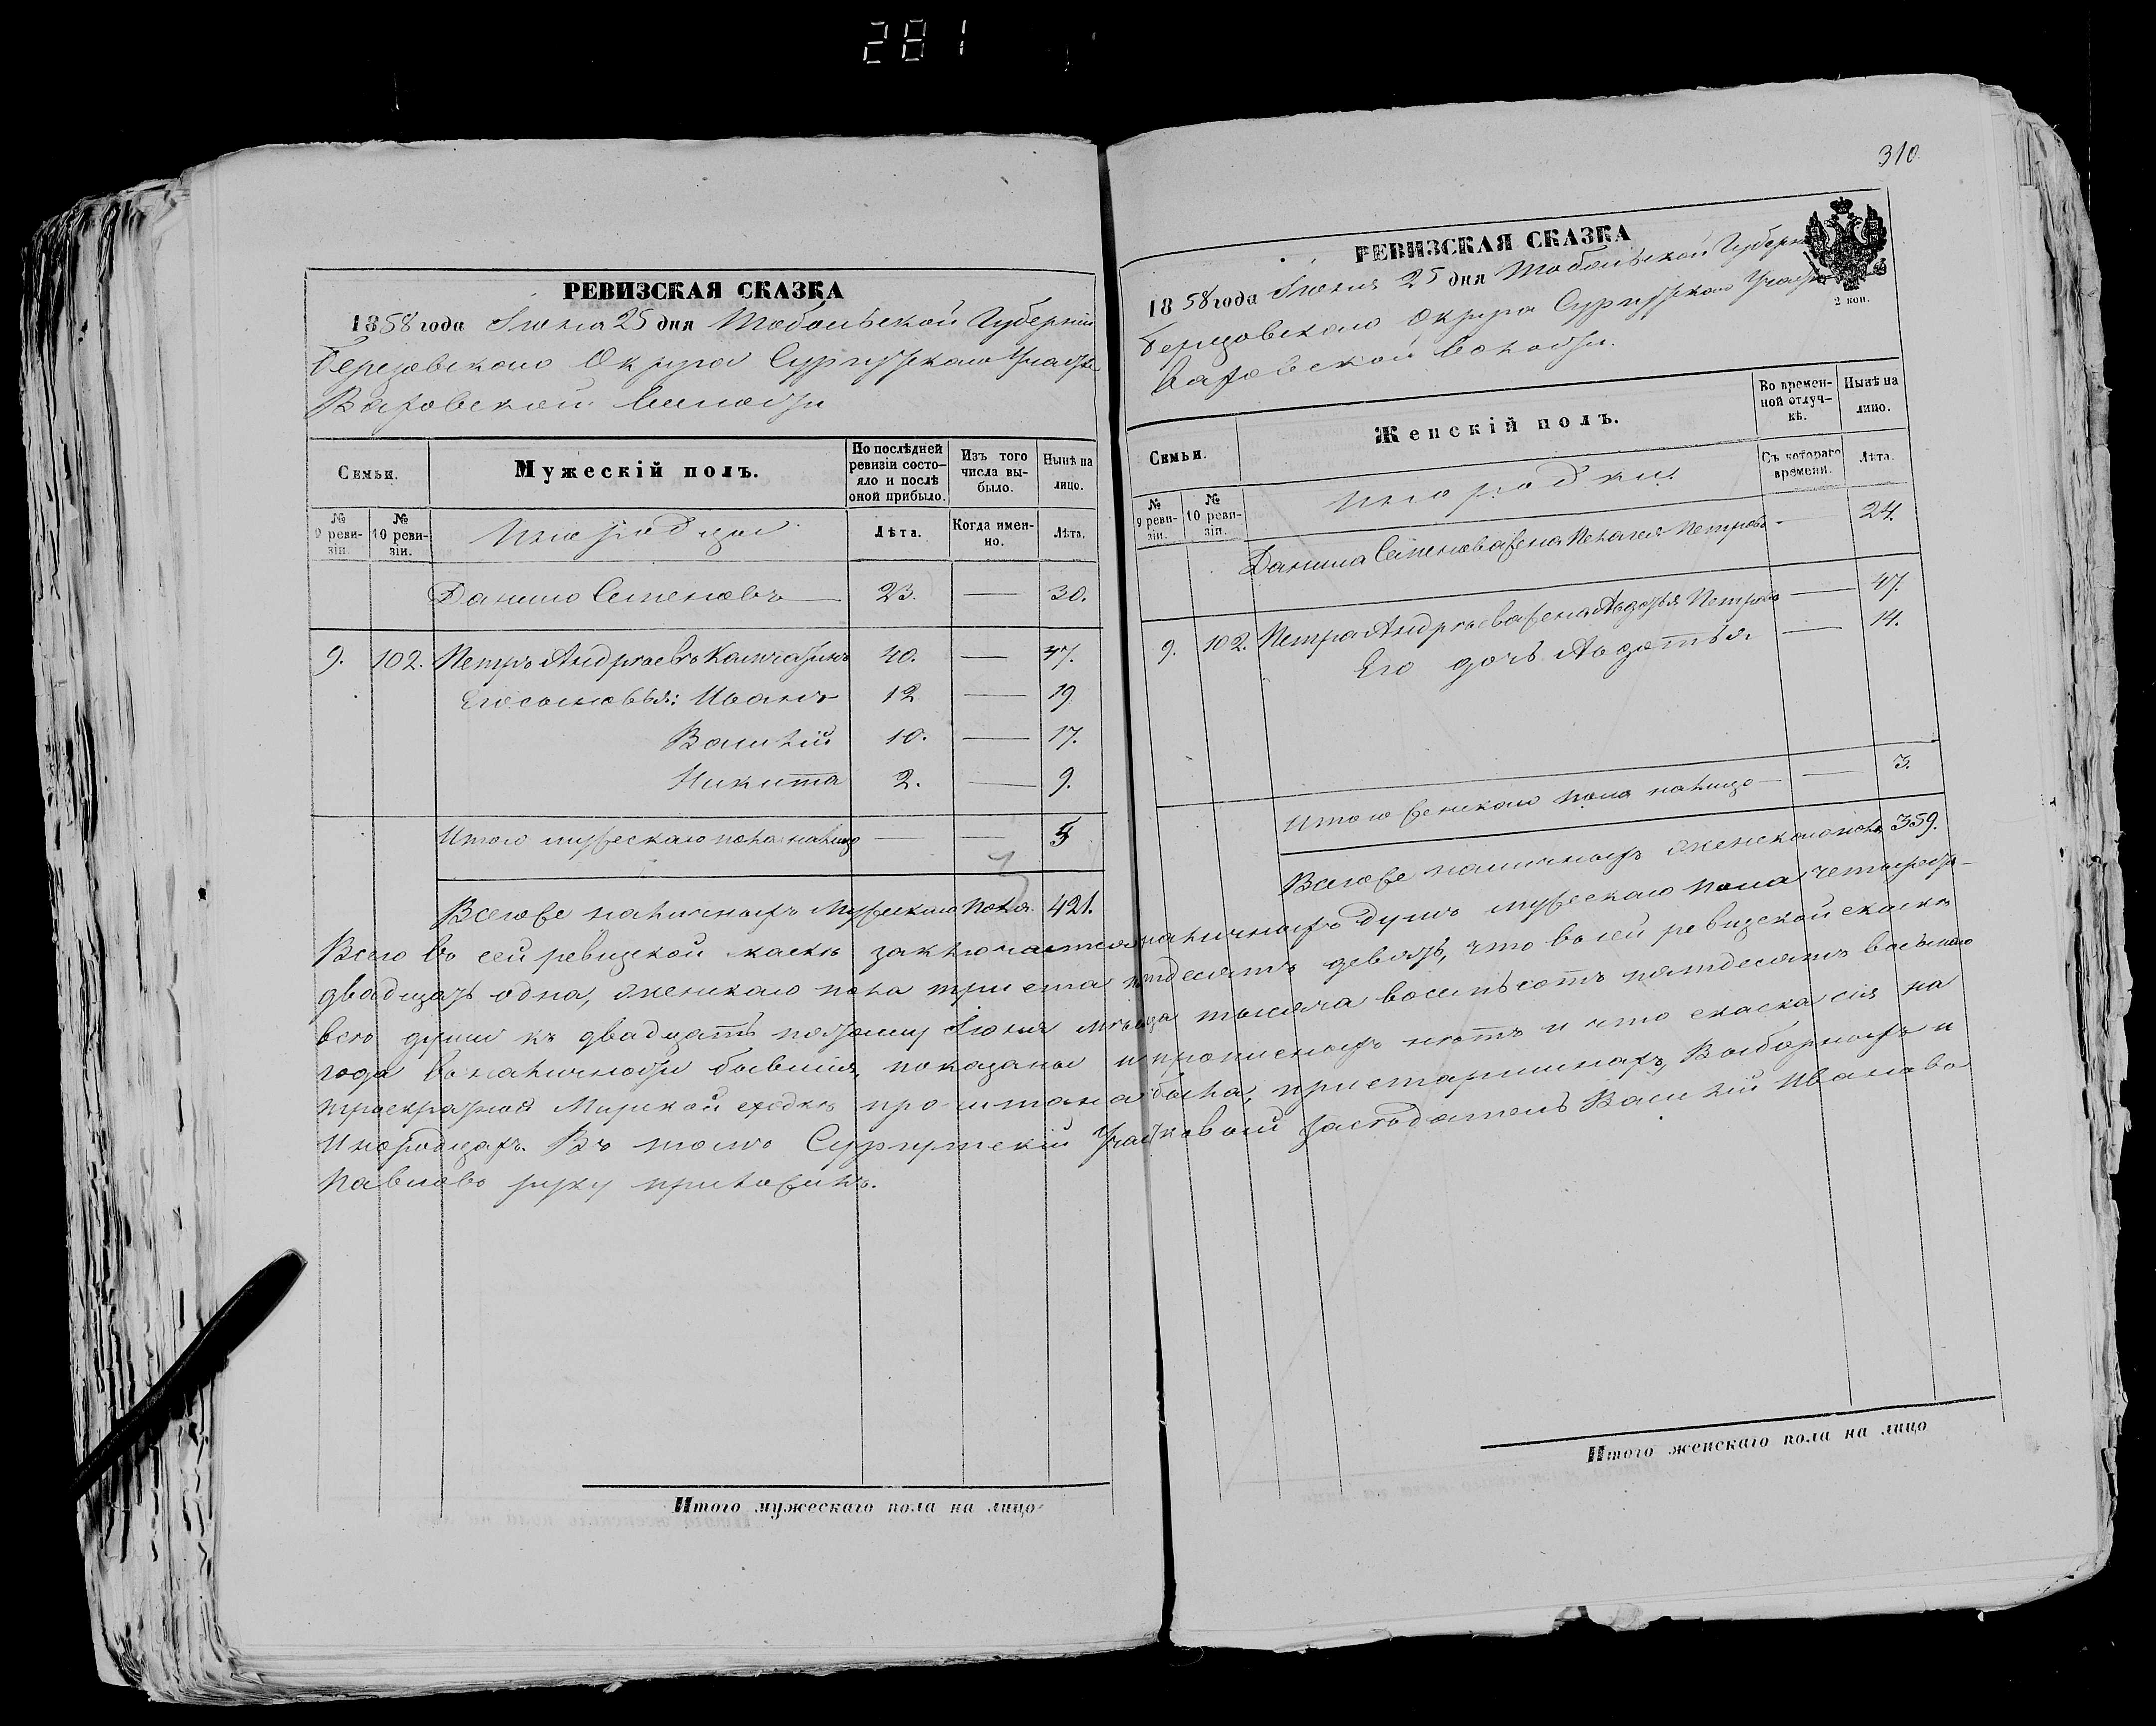 281
РЕВИЗСКАЯ СКАЗКА
1858 года Іюня 25 дня Тобольской Губерніи
Березовскаго Округа Сургутскаго Участка
Ваховской Волости
Семьи.
Мужескій полъ.
По послѣдней ревизіи состояло и послѣ оной прибыло.
Изъ того числа выбыло.
Нынѣ на лицо.
№ 9 ревизіи.
№ 10 ревизіи.
Инородцы
Лѣта.
Когда именно.
Лѣта.
Данило Семеновъ 23. — 30.
9. 102. Петръ Андреевъ 40. — 47.
Его сыновья: Иванъ 12 — 19
Василій 10. — 17.
Никита 2. — 9.
Итого мужескаго пола налицо — — 5
Всего же наличныхъ Мужескаго пола 421.
310
РЕВИЗСКАЯ СКАЗКА
1858 года Іюня 25 дня Тобольской Губерніи
Березовскаго Округа Сургутскаго Участка
Ваховской волости.
2 коп.
Семьи.
Женскій полъ.
Во временной отлучкѣ.
Нынѣ на лицо.
№ 9 ревизіи.
№ 10 ревизіи.
Инородки
Съ котораго времени.
Лѣта.
Данила Семенова жена Пелагея Петрова — 24.
9. 102. Петра Андреева жена Авдотья Петрова — 47.
Его дочь Авдотья — 14.
Итого женскаго пола налицо — — 3.
Всего же наличныхъ женскаго пола 359.
Всего во сей ревизской скаске заключается наличныхъ Душъ мужескаго пола четыреста
двадцать одна, женскаго пола триста пятдесятъ девять, что во сей ревизской скаске
все души къ двадцать пятому Іюня мѣсяца тысяча восемьсотъ пятдесятъ восьмаго
года во наличности бывшія, показаны и прописныхъ нѣтъ и что скаска сія на
троекратной Мирской сходке прочитана была, при старшинахъ, Выборныхъ и
Инородцах. Въ томъ Сургутскій Участковый Засѣдатель Василій Иваново
Павлово руку приложилъ.
Итого мужескаго пола на лицо
Итого женскаго пола на лицо